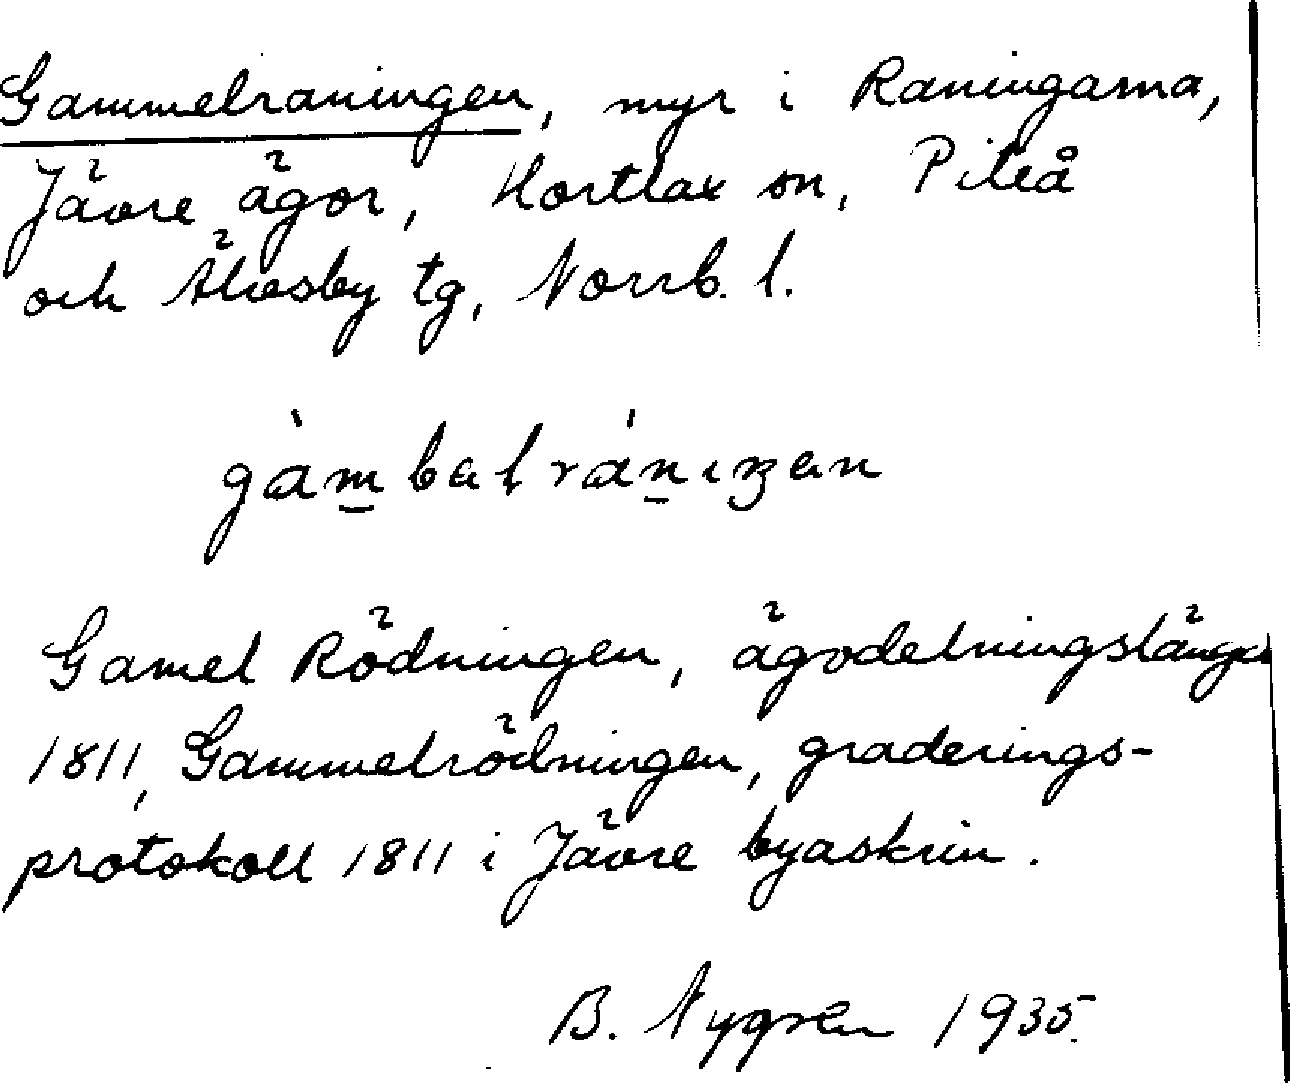 Gammelraningen, myr i Raningarna,
Jävre ägor, Hortlax sn, Piteå
och Älvsby tg, Norrb. l.
gàmbalránıŋen
Gamel Rödningen, ägodelningslängd
1811, Gammelrödningen, graderings-
protokoll 1811 i Jävre byaskrin.
B. Nygren 1935.